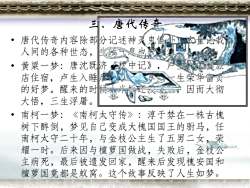 三、唐代传奇
• 唐代传奇内容除部分记述神灵鬼怪
人间的各种世态，
• 黄粱一梦：唐沈既济 中记》，
店住宿，卢生入睡 生荣华富贵
的好梦，醒来的时候 因而大彻
大悟，三生浮屠。
• 南柯一梦：《南柯太守传》：淳于棼在一株古槐
树下醉倒，梦见自己变成大槐国国王的驸马，任
南柯太守二十年，与金枝公主生了五男二女，荣
耀一时。后来因与檀萝国做战，失败后，金枝公
主病死，最后被遣发回家，醒来后发现槐安国和
檀萝国竟都是蚁窝。这个故事反映了人生如梦。